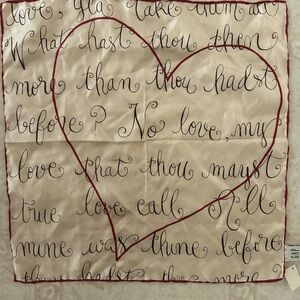 love, yea take them all
What hast thou then
more than thou hadst
before? No love, my
love that thou mayst
true love call All
mine was thine before
thou hadst this more
GAP